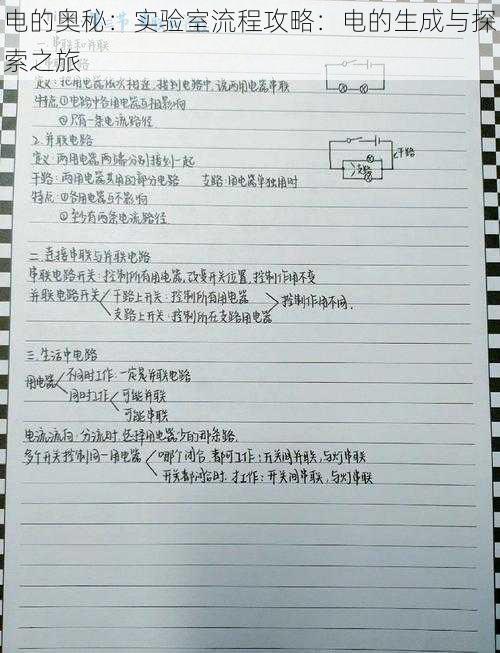 电的奥秘：实验室流程攻略：电的生成与探
索之旅
一.串联和并联
定义：把用电器依次相连，接到电路中，说两用电器串联
特点①电路中各用电器互相影响
②只有一条电流路径
2.并联电路
定义：两用电器两端分别接到一起
干路：两用电器共用的部分电路 支路：用电器单独用时
特点①各用电器互不影响
②至少有两条电流路径
干路
支路
二.连接串联与并联电路
串联电路开关：控制所有用电器，改变开关位置，控制作用不变
并联电路开关 干路上开关：控制所有用电器 控制作用不同.
支路上开关：控制所在支路用电器
三.生活中电路
用电器 不同时工作：一定是并联电路
同时工作 可能并联
可能串联
电流流向：分流时，选择用电器少的那条路.
多个开关控制同一用电器 哪个闭合，都可工作：开关间并联，与灯串联
开关都闭合时，才工作：开关间串联，与灯串联